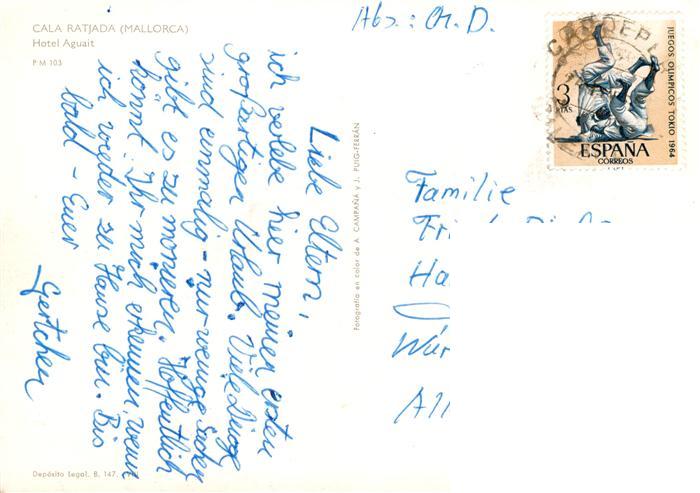 CALA RATJADA (MALLORCA)
Hotel Aguait
P M 103
Liebe Eltern,
ich verlebe hier meinen ersten
großartigen Urlaub. Viele Dinge
sind einmalig - nur wenige Sachen
gibt es zu monieren. Hoffentlich
könnt Ihr mich erkennen, wenn
ich wieder zu Hause bin. Bis
bald - Euer
Gertchen
Depósito Legal. B. 147.
Fotografía en color de A. CAMPAÑÁ y J. PUIG-FERRÁN
Abs.: G. D.
3
PTAS
JUEGOS OLIMPICOS TOKIO 1964
ESPAÑA
CORREOS
Familie